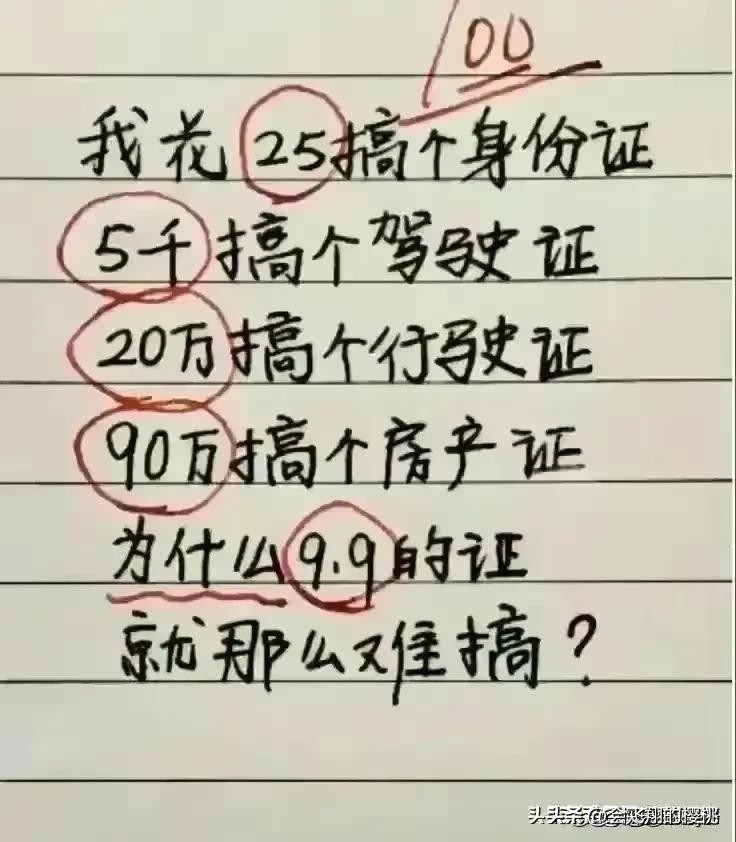 100
我花25搞个身份证
5千搞个驾驶证
20万搞个行驶证
90万搞个房产证
为什么9.9的证
就那么难搞?
头条@会飞翔的樱桃